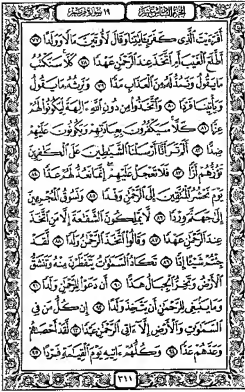 الجزء السادس عشر سورة مريم ١٩
أَفَرَءَيْتَ ٱلَّذِى كَفَرَ بِـَٔايَٰتِنَا وَقَالَ لَأُوتَيَنَّ مَالًا وَوَلَدًا ٧٧
أَطَّلَعَ ٱلْغَيْبَ أَمِ ٱتَّخَذَ عِندَ ٱلرَّحْمَٰنِ عَهْدًا ٧٨ كَلَّا سَنَكْتُبُ
مَا يَقُولُ وَنَمُدُّ لَهُۥ مِنَ ٱلْعَذَابِ مَدًّا ٧٩ وَنَرِثُهُۥ مَا يَقُولُ
وَيَأْتِينَا فَرْدًا ٨٠ وَٱتَّخَذُوا۟ مِن دُونِ ٱللَّهِ ءَالِهَةً لِّيَكُونُوا۟ لَهُمْ
عِزًّا ٨١ كَلَّا سَيَكْفُرُونَ بِعِبَادَتِهِمْ وَيَكُونُونَ عَلَيْهِمْ
ضِدًّا ٨٢ أَلَمْ تَرَ أَنَّآ أَرْسَلْنَا ٱلشَّيَٰطِينَ عَلَى ٱلْكَٰفِرِينَ
تَؤُزُّهُمْ أَزًّا ٨٣ فَلَا تَعْجَلْ عَلَيْهِمْ إِنَّمَا نَعُدُّ لَهُمْ عَدًّا ٨٤
يَوْمَ نَحْشُرُ ٱلْمُتَّقِينَ إِلَى ٱلرَّحْمَٰنِ وَفْدًا ٨٥ وَنَسُوقُ ٱلْمُجْرِمِينَ
إِلَىٰ جَهَنَّمَ وِرْدًا ٨٦ لَّا يَمْلِكُونَ ٱلشَّفَٰعَةَ إِلَّا مَنِ ٱتَّخَذَ
عِندَ ٱلرَّحْمَٰنِ عَهْدًا ٨٧ وَقَالُوا۟ ٱتَّخَذَ ٱلرَّحْمَٰنُ وَلَدًا ٨٨ لَّقَدْ
جِئْتُمْ شَيْـًٔا إِدًّا ٨٩ تَكَادُ ٱلسَّمَٰوَٰتُ يَتَفَطَّرْنَ مِنْهُ وَتَنشَقُّ
ٱلْأَرْضُ وَتَخِرُّ ٱلْجِبَالُ هَدًّا ٩٠ أَن دَعَوْا۟ لِلرَّحْمَٰنِ وَلَدًا ٩١
وَمَا يَنۢبَغِى لِلرَّحْمَٰنِ أَن يَتَّخِذَ وَلَدًا ٩٢ إِن كُلُّ مَن فِى
ٱلسَّمَٰوَٰتِ وَٱلْأَرْضِ إِلَّآ ءَاتِى ٱلرَّحْمَٰنِ عَبْدًا ٩٣ لَّقَدْ أَحْصَىٰهُمْ
وَعَدَّهُمْ عَدًّا ٩٤ وَكُلُّهُمْ ءَاتِيهِ يَوْمَ ٱلْقِيَٰمَةِ فَرْدًا ٩٥
٣١١